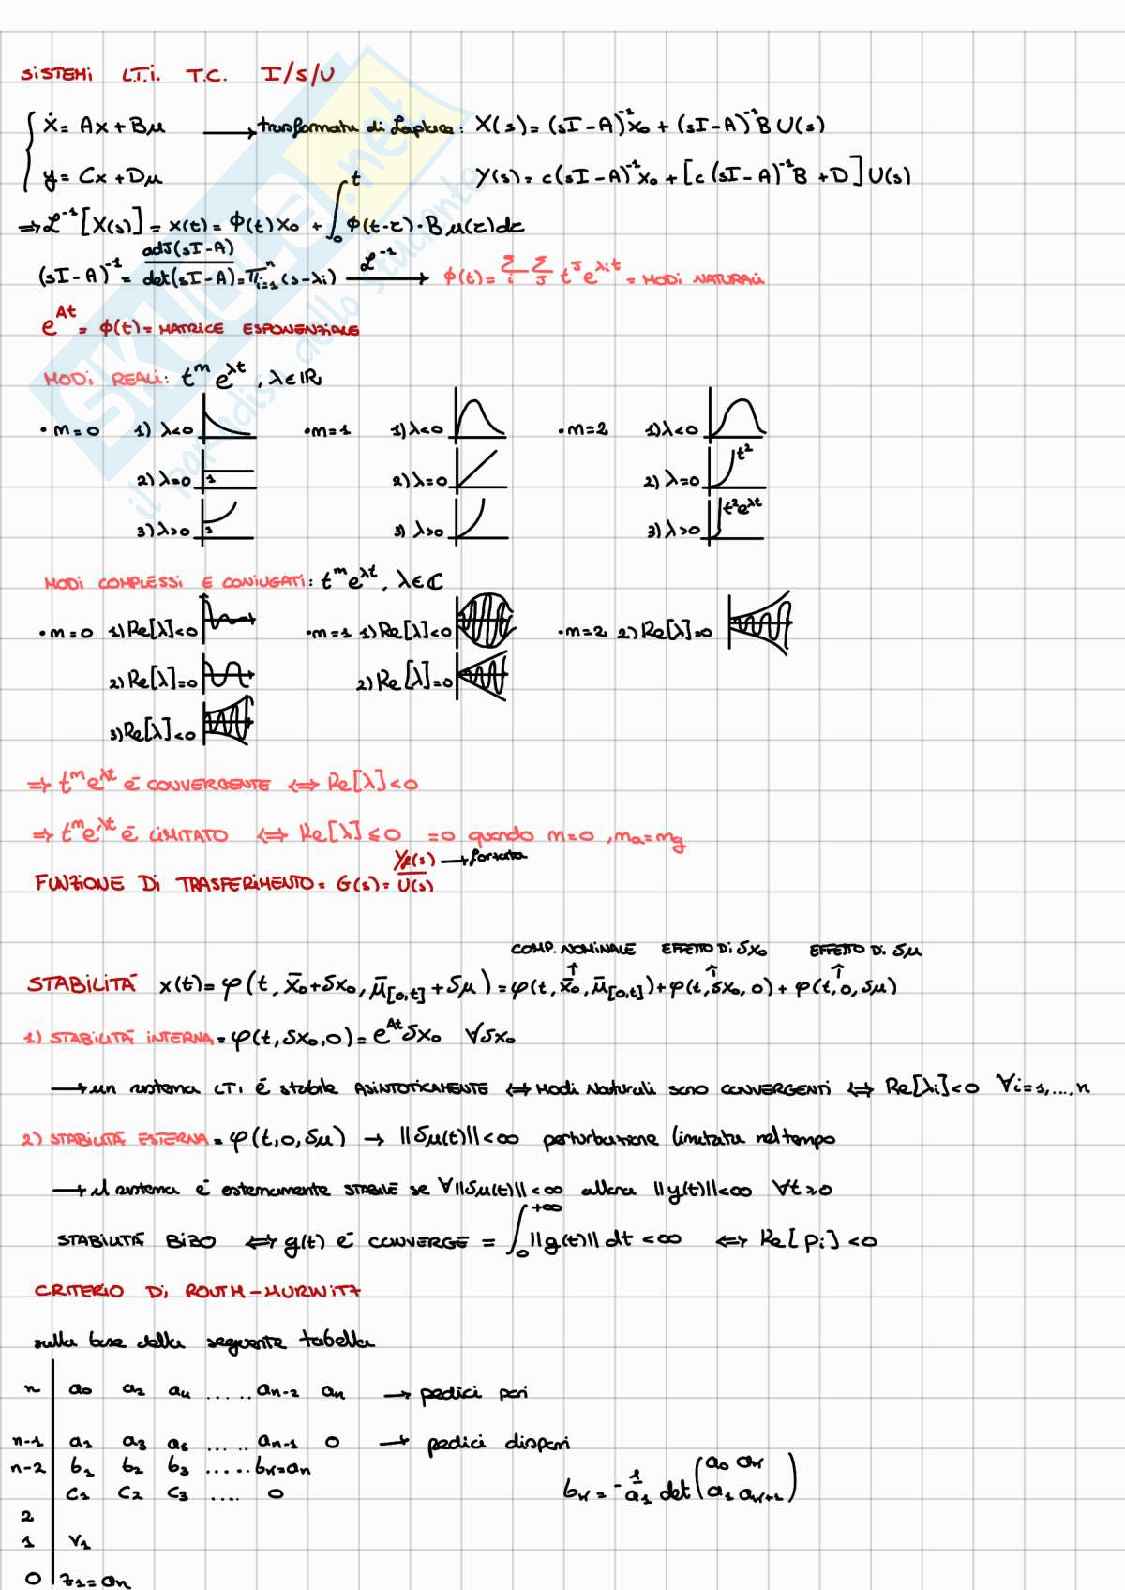 SISTEMI L.T.I. T.C. I/S/U
ẋ = Ax + Bμ → trasformata di Laplace: X(s) = (sI-A)⁻¹x₀ + (sI-A)⁻¹BU(s)
y = Cx + Dμ Y(s) = c(sI-A)⁻¹x₀ + [c(sI-A)⁻¹B + D]U(s)
⇒ L⁻¹[X(s)] = x(t) = Φ(t)x₀ + ∫₀ᵗ Φ(t-τ)·Bμ(τ)dτ
(sI-A)⁻¹ = adJ(sI-A)/det(sI-A) = πⁿᵢ₌₁(s-λi) L⁻¹→ φ(t) = Σi ΣJ tᴶ e^λit = MODI NATURALI
e^At = φ(t) = MATRICE ESPONENZIALE
MODI REALI: tᵐ e^λt, λ∈ℝ
• m=0 1) λ<0 • m=1 1) λ<0 • m=2 1) λ<0
2) λ=0 1 2) λ=0 2) λ=0 t²
3) λ>0 1 3) λ>0 3) λ>0 t²e^λt
MODI COMPLESSI E CONIUGATI: tᵐe^λt, λ∈ℂ
• m=0 1) Re[λ]<0 • m=1 1) Re[λ]<0 • m=2 2) Re[λ]=0
2) Re[λ]=0 2) Re[λ]=0
3) Re[λ]<0
⇒ tᵐe^λt è CONVERGENTE ⇔ Re[λ]<0
⇒ tᵐe^λt è LIMITATO ⇔ Re[λ]≤0 =0 quando m=0, ma=mg
FUNZIONE DI TRASFERIMENTO = G(s) = Yf(s)/U(s) → forzata
COMP. NOMINALE EFFETTO DI δx₀ EFFETTO DI δμ
STABILITÀ x(t) = φ(t, x̄₀+δx₀, μ̄[0,t]+δμ) = φ(t, x̄₀, μ̄[0,t]) + φ(t, δx₀, 0) + φ(t, 0, δμ)
1) STABILITÀ INTERNA = φ(t, δx₀, 0) = e^At δx₀ ∀δx₀
→ un sistema LTI è stabile ASINTOTICAMENTE ⇔ MODI NATURALI SONO CONVERGENTI ⇔ Re[λi]<0 ∀i=1,...,n
2) STABILITÀ ESTERNA = φ(t,0,δμ) → ||δμ(t)||<∞ perturbazione limitata nel tempo
→ il sistema è esternamente STABILE se ∀||δμ(t)||<∞ allora ||y(t)||<∞ ∀t≥0
STABILITÀ BIBO ⇔ g(t) è CONVERGE = ∫₀⁺∞ ||g(t)|| dt <∞ ⇔ Re[pi]<0
CRITERIO DI ROUTH-HURWITZ
sulla base della seguente tabella
n a₀ a₂ a₄ ..... an-2 an → pedici pari
n-1 a₁ a₃ a₅ ..... an-1 0 → pedici dispari
n-2 b₁ b₂ b₃ ..... bk=an
c₁ c₂ c₃ .... 0 bk = -1/a₁ det(a₀ ak a₁ ak+1)
2
1 v₁
0 z₁=an
SKUOLA.net
il paradiso dello studente